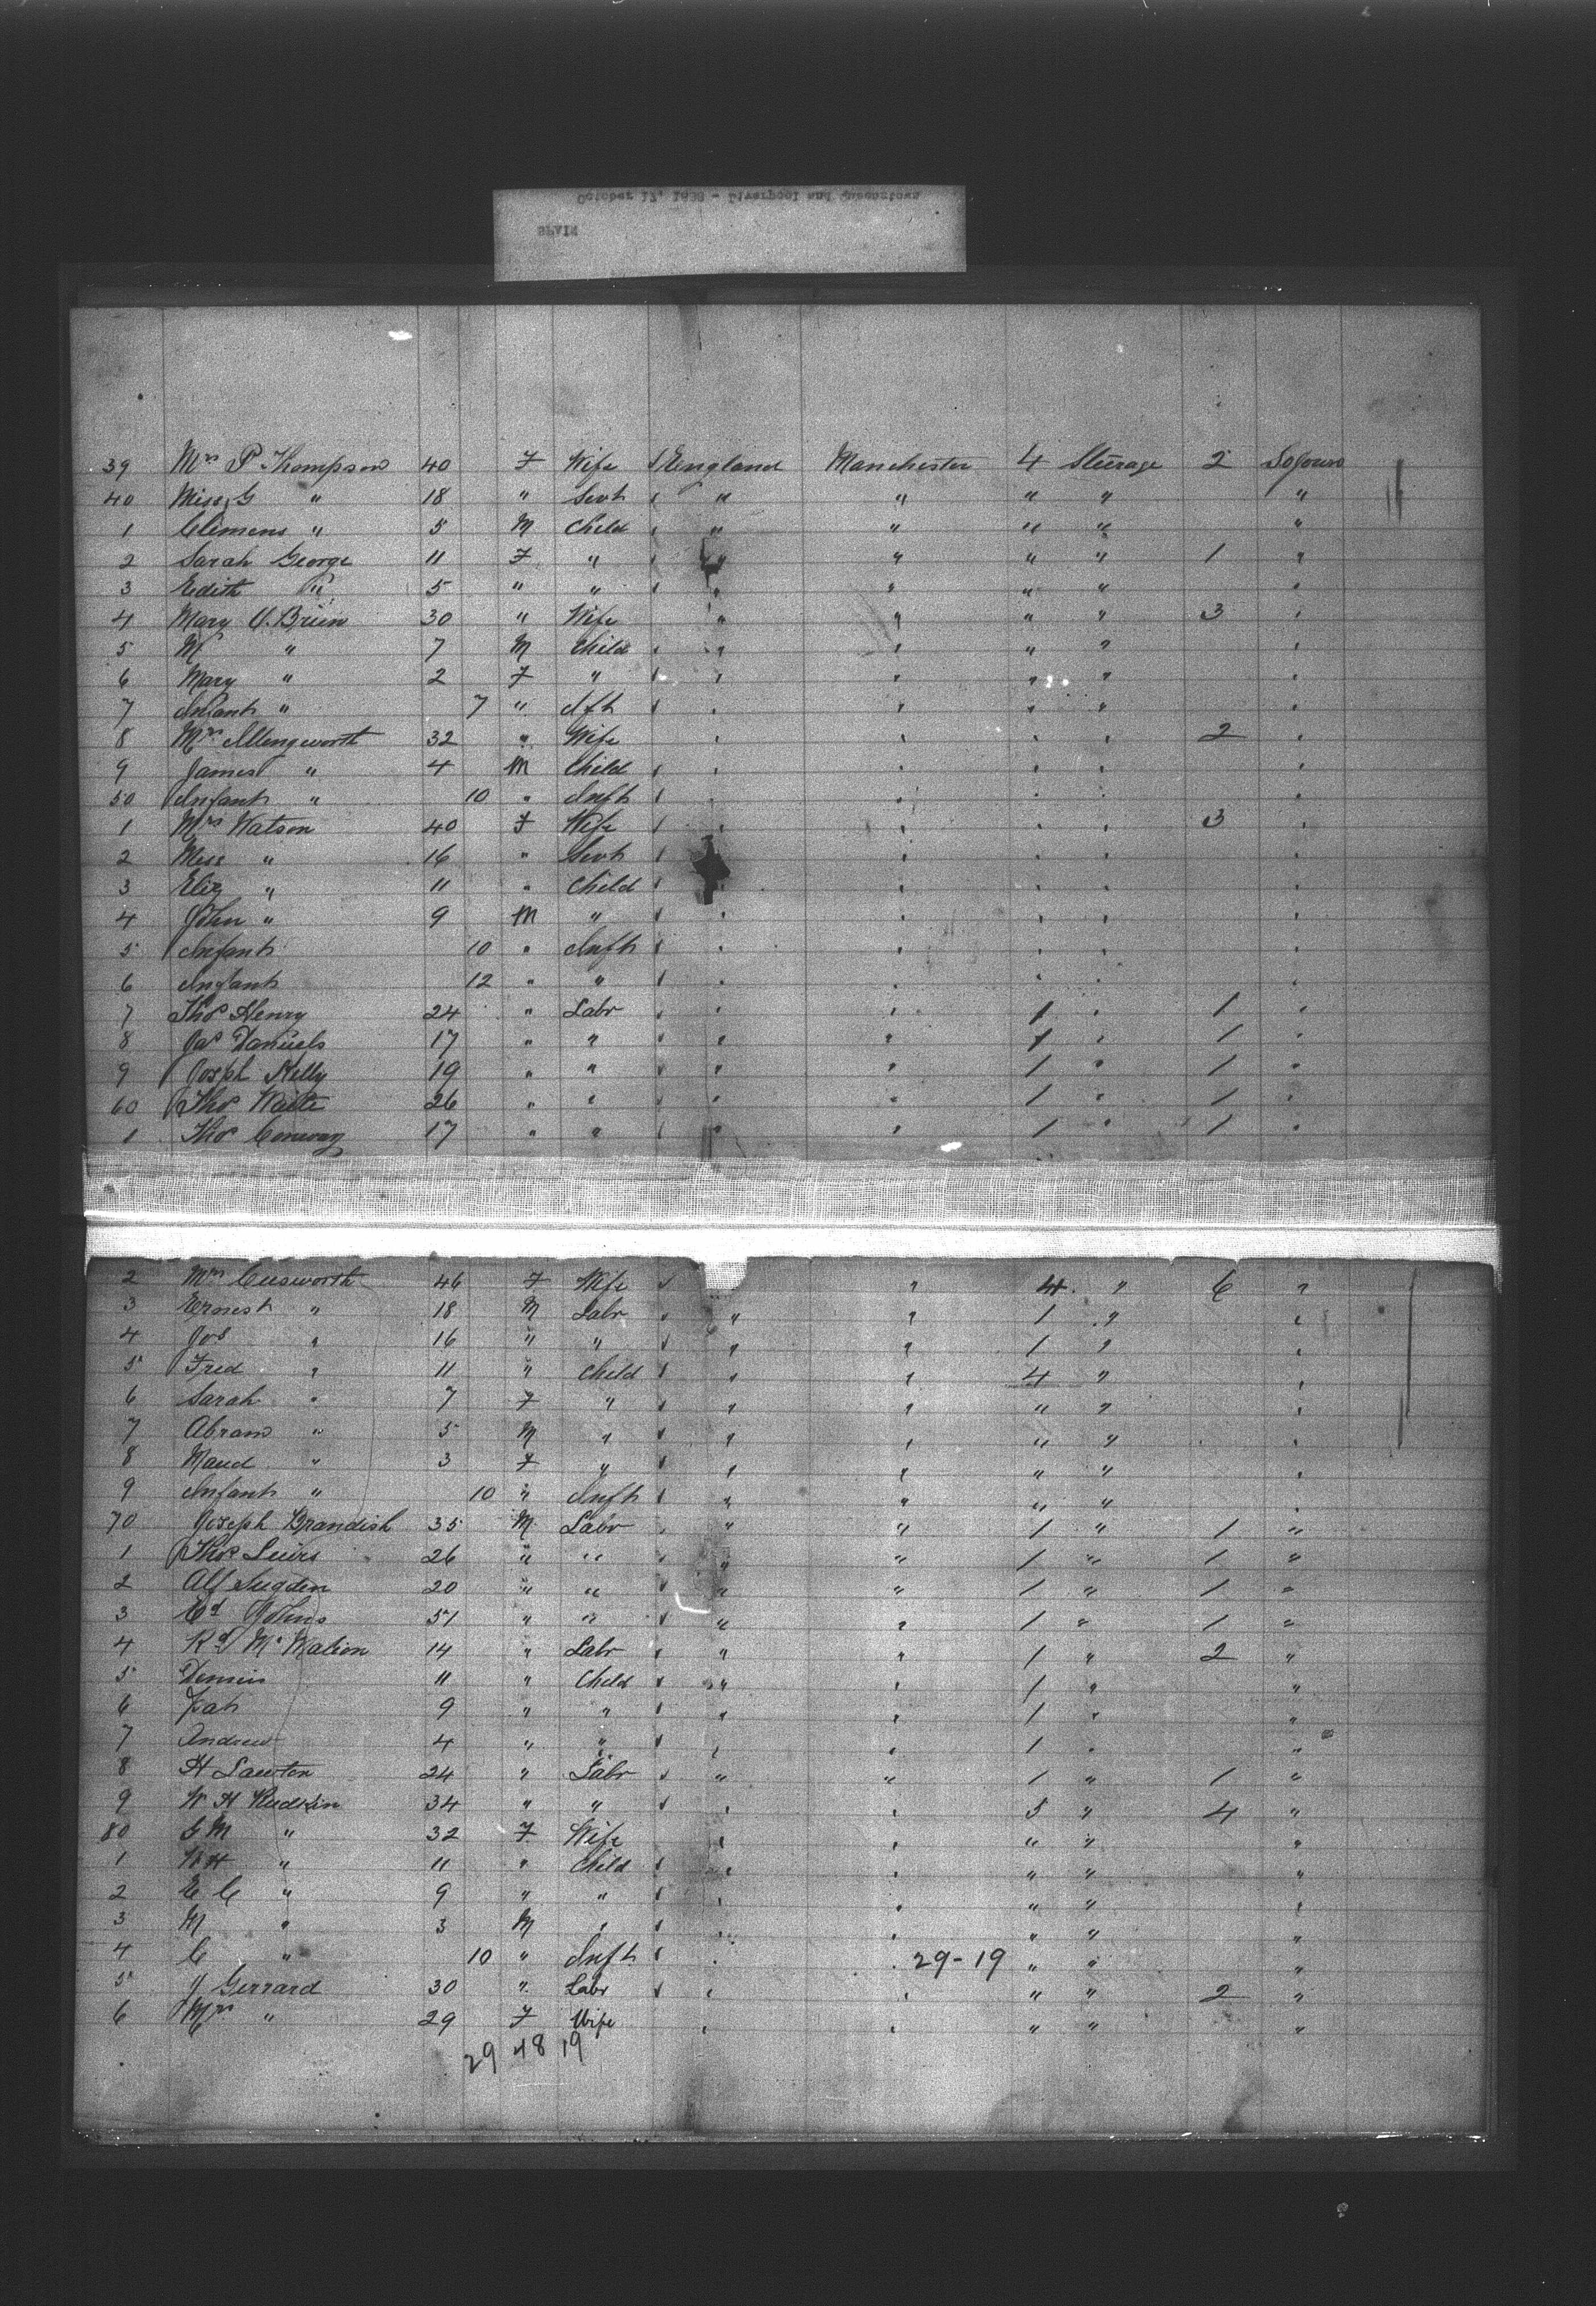 October 17, 1888 - Liverpool and Queenstown
39 Mrs P Thompson 40 F Wife England Manchester 4 Steerage 2 Sojourn
40 Miss G " 18 " Servt " " " " "
1 Clemens " 5 M Child " " " " "
2 Sarah George 11 F " " " " " 1 "
3 Edith " 5 " " " " " " "
4 Mary O'Brien 30 " Wife " " " " 3 "
5 M " 7 M Child " " " " "
6 Mary " 2 F " " " " " "
7 Infant " 7 " Ift " " " " "
8 Mrs Illengworth 32 " Wife " " " " 2 "
9 James " 4 M Child " " " " "
50 Infant " 10 " Inft " " " " "
1 Mrs Watson 40 F Wife " " " " 3 "
2 Miss " 16 " Servt " " " " "
3 Eliz " 11 " Child " " " " "
4 John " 9 M " " " " " "
5 Infant 10 " Inft " " " " "
6 Infant 12 " " " " " "
7 Thos Henry 24 " Labr " " 1 " 1 "
8 Jas Daniels 17 " " " " 1 " 1 "
9 Joseph Kelly 19 " " " " 1 " 1 "
60 Thos Waite 26 " " " " 1 " 1 "
1 Thos Conway 17 " " " " 1 " 1 "
2 Mrs Cusworth 46 F Wife " 4 " 6 "
3 Ernest " 18 M Labr " " 1 " "
4 Jos " 16 " " " " 1 " "
5 Fred " 11 " Child " " 4 " "
6 Sarah " 7 F " " " " " "
7 Abram " 5 M " " " " " "
8 Maud " 3 F " " " " " "
9 Infant " 10 " Inft " " " " "
70 Joseph Brandish 35 M Labr " " 1 " 1 "
1 Thos Leivs 26 " " " " 1 " 1 "
2 Alf Sugden 20 " " " " 1 " 1 "
3 Ed Johns 51 " " " " 1 " 1 "
4 Rd McMahon 14 " Labr " " 1 " 2 "
5 Dennis 11 " Child " " 1 " "
6 Pat 9 " " " " 1 " "
7 Andrew 4 " " " " 1 " "
8 H Lawton 24 " Labr " " 1 " 1 "
9 W H Rudkin 34 " " " " 5 " 4 "
80 G M " 32 F Wife " " " " "
1 W H " 11 " Child " " " " "
2 E C " 9 " " " " " " "
3 M " 3 M " " " " " "
4 C " 10 " Inft " " 29-19 " " "
5 J Gerrard 30 " Labr " " " " 2 "
6 Mrs " 29 F Wife " " " " "
29 48 19